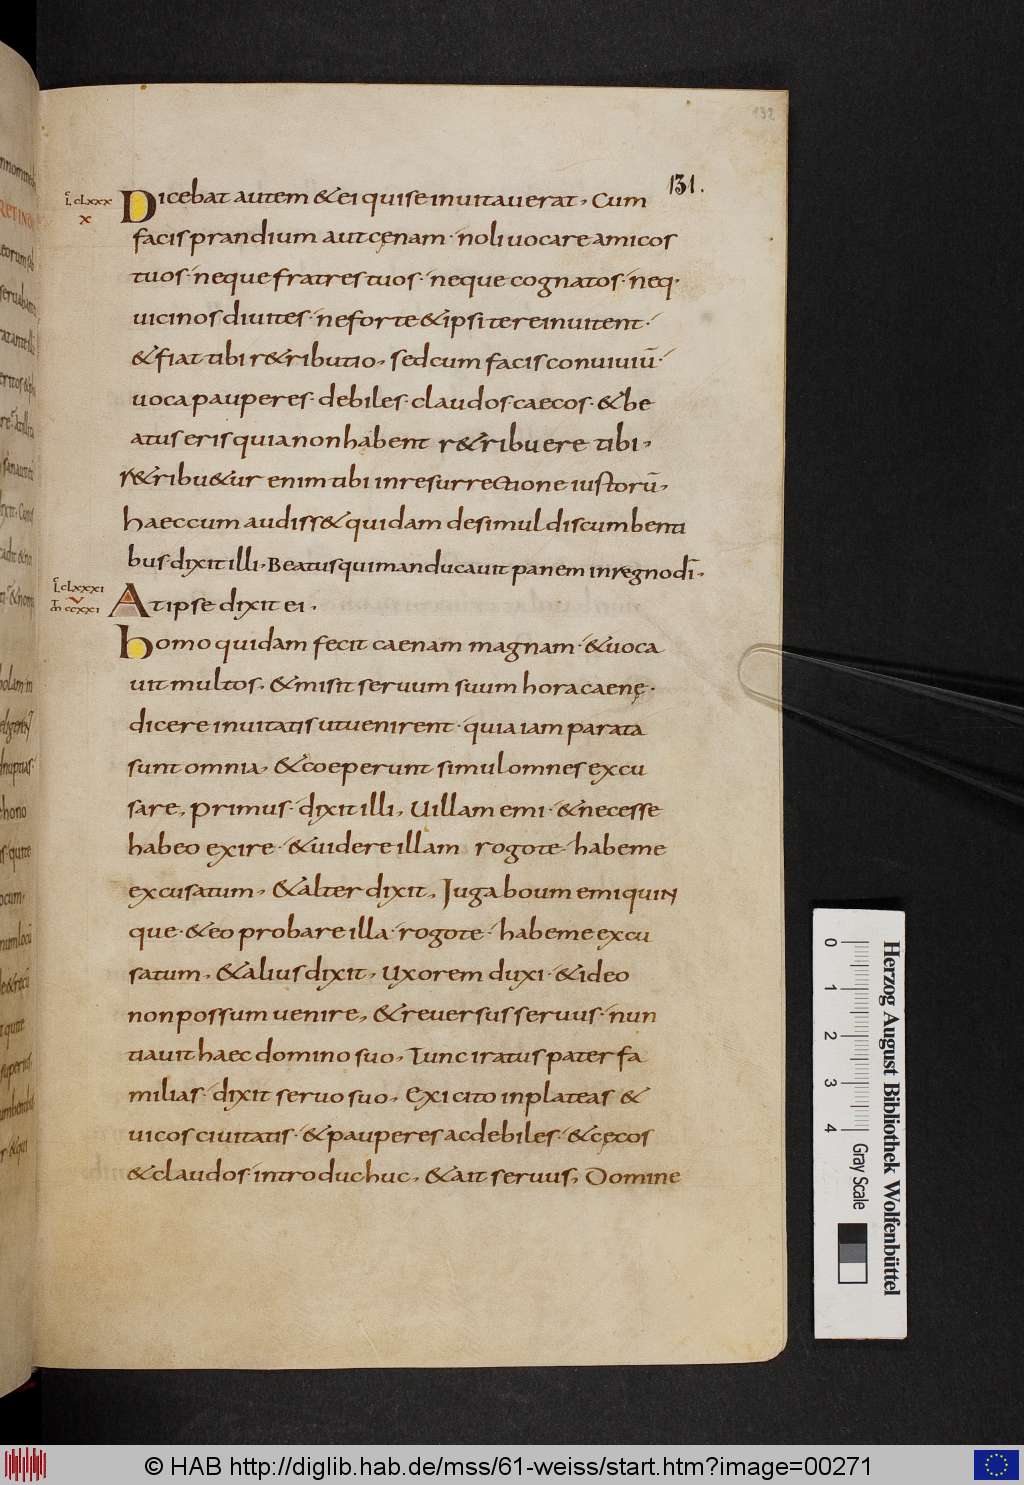 132
131.
L CLXXX
X
Dicebat autem & ei qui se inuitauerat, Cum
facis prandium aut cęnam · noli uocare amicos
tuos · neque fratres tuos · neque cognatos · neq·
uicinos diuites · ne forte & ipsi te reinuitent ·
& fiat tibi r&ributio, sed cum facis conuiuiū ·
uoca pauperes · debiles · claudos · caecos · & be
atus eris quia non habent r&ribuere tibi,
r&ribu&ur enim tibi in resurrectione iustorū,
haec cum audiss& quidam de simul discumbenti
bus · dixit illi, Beatus qui manducauit panem in regno dī,
L CLXXXI
M CCXXI
V
At ipse dixit ei,
homo quidam fecit caenam magnam · & uoca
uit multos, & misit seruum suum hora caenę ·
dicere inuitatis ut uenirent · quia iam parata
sunt omnia, & coeperunt simul omnes excu
sare, Primus · dixit illi, Uillam emi · & necesse
habeo exire · & uidere illam rogo te · habe me
excusatum, & alter dixit, Juga boum emi quin
que · & eo probare illa · rogo te · habe me excu
satum, & alius dixit, Uxorem duxi · & ideo
non possum uenire, & reuersus seruus · nun
tiauit haec domino suo, Tunc iratus pater fa
milias · dixit seruo suo, Exi cito in plateas &
uicos ciuitatis · & pauperes ac debiles · & cęcos
& claudos · introduc huc, & ait seruus, Domine
0
1
2
3
4
Gray Scale
Herzog August Bibliothek Wolfenbüttel
© HAB http://diglib.hab.de/mss/61-weiss/start.htm?image=00271